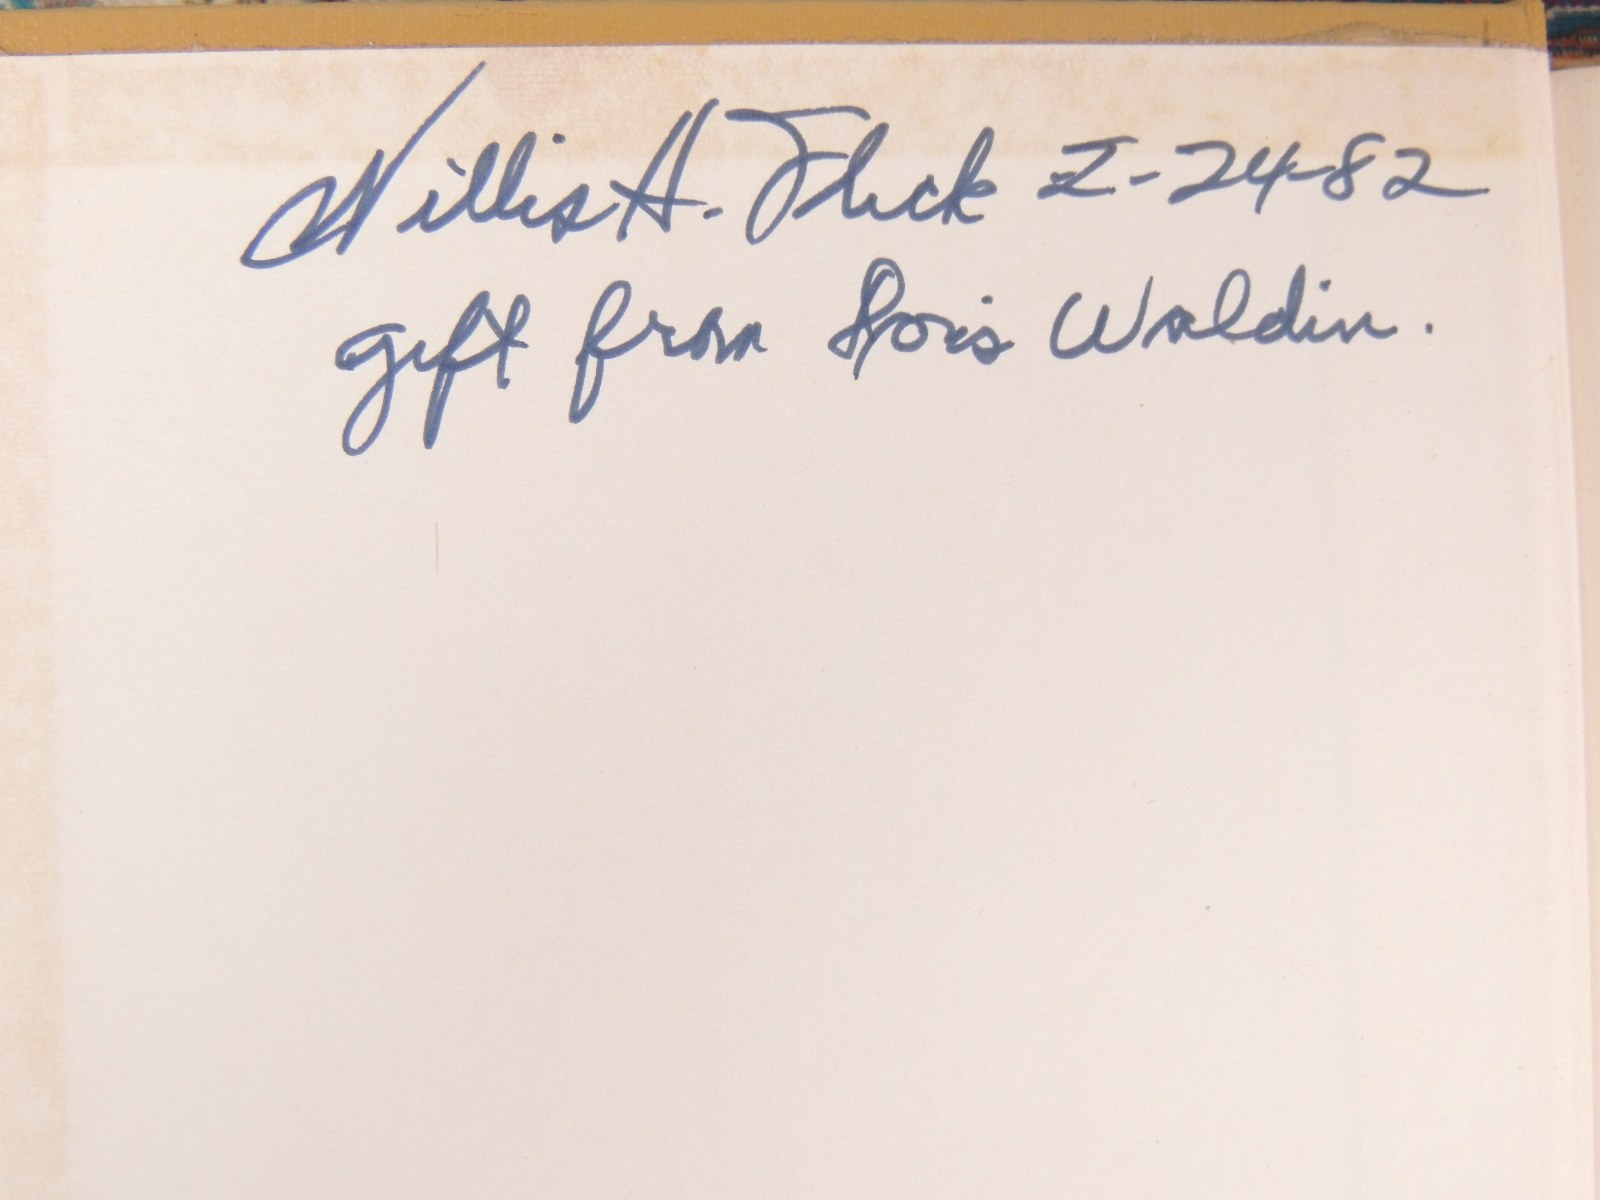 Willis H. Flick I-24-82
gift from Lois Waldin.